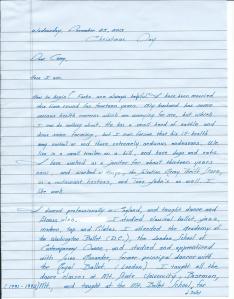 Wednesday, December 25, 2013
Christmas Day
Dear Gang,
Here I am.
How to begin? Facts are always helpful. I have been married
this time round for fourteen years. My husband has some
serious health concerns which are worrying for me, but which
I can do nothing about. He has a small herd of cattle and
does some farming, but I can foresee that his ill-health
may curtail or end these extremely arduous endeavors. We
live in a small trailer on a hill, and have dogs and cats.
I have worked as a janitor for about thirteen years
now, and worked at the Salvation Army Thrift Store,
as a restaurant hostess, and Papa John's as well. I
like work.
I danced professionally in Iceland, and taught dance and
fitness too. I studied classical ballet, jazz,
modern, tap and Pilates. I attended the Academy of
the Washington Ballet (D.C.), the London School of
Contemporary Dance, and studied and apprenticed
with Alexander, former principal dancer with
the Royal Ballet (London). I taught all the
dance classes at MT. State University - Bozeman,
(1991-1992) MT., and taught at the MT. Ballet School, for